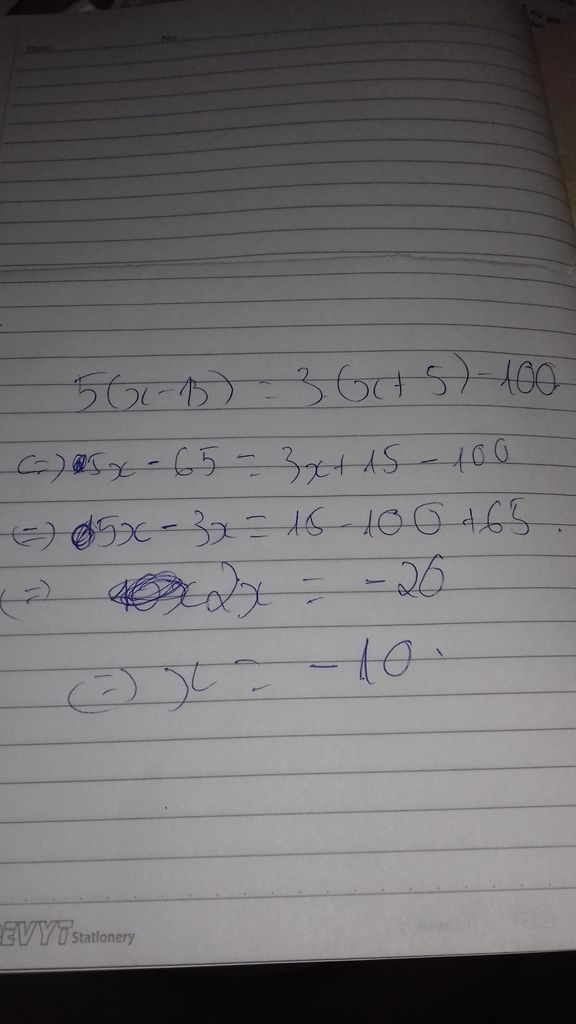 Date No
5(x-13) = 3.(x+5)-100
<=> 5x - 65 = 3x+15 - 100
<=> 5x - 3x = 15 - 100 +65.
<=> 2x = -20
<=> x = -10.
DEVYT Stationery